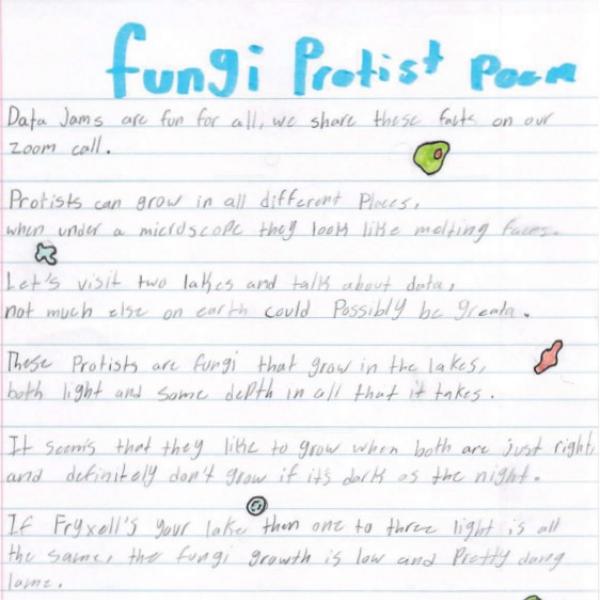 fungi Protist Poem
Data Jams are fun for all, we share these facts on our
zoom call.
Protists can grow in all different Places,
when under a microscope they look like melting faces.
Let's visit two lakes and talk about data,
not much else on earth could Possibly be greata.
These Protists are fungi that grow in the lakes,
both light and some depth in all that it takes.
It seems that they like to grow when both are just right,
and definitely don't grow if it's dark as the night.
If Fryxell's your lake then one to three light is all
the same, the fungi growth is low and Pretty dang
lame.